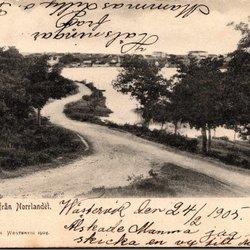 Mammas Lilly o
från
Hälsningar
från Norrlandet.
Westervik 1902.
Westervik den 24/2 1905
Älskade Mamma! Jag
skicka en vy